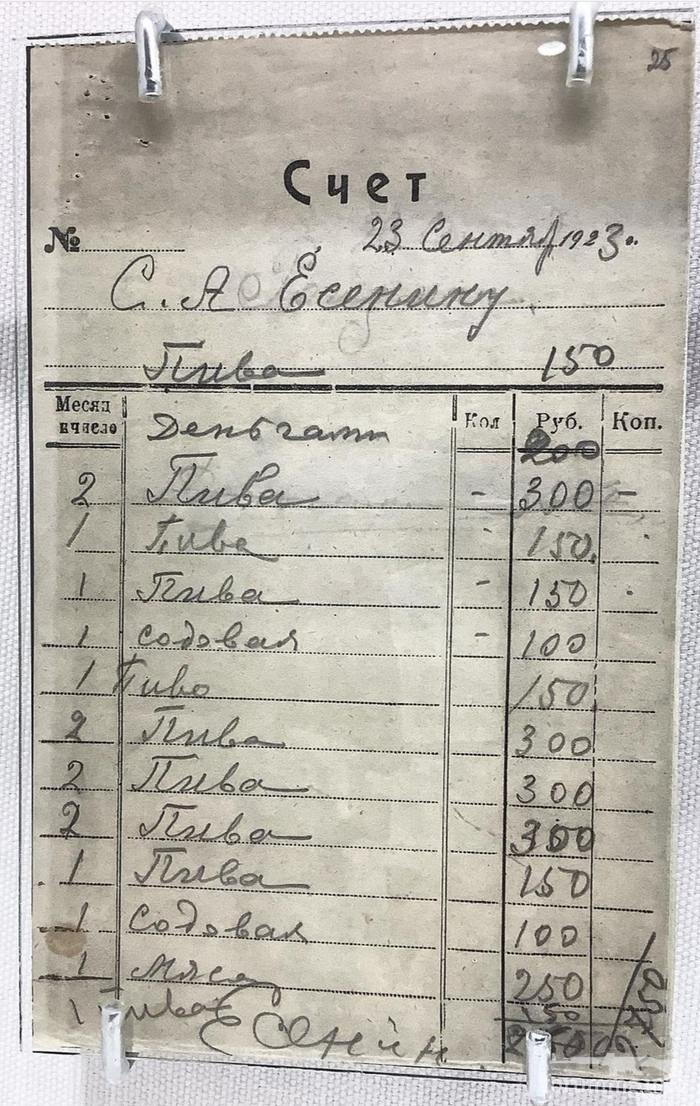 25
Счет
№ 23 Сентябр 1923 г.
С. А Есенину
Пива 150
Месяц и число Деньгами Кол Руб. Коп.
200
2 Пива - 300 -
1 Пива - 150
1 Пива - 150
1 содовая - 100
1 Пиво 150
2 Пива 300
2 Пива 300
2 Пива 300
1 Пива 150
1 Содовая 100
1 Мясо 250
1 Пива 150
Есенин